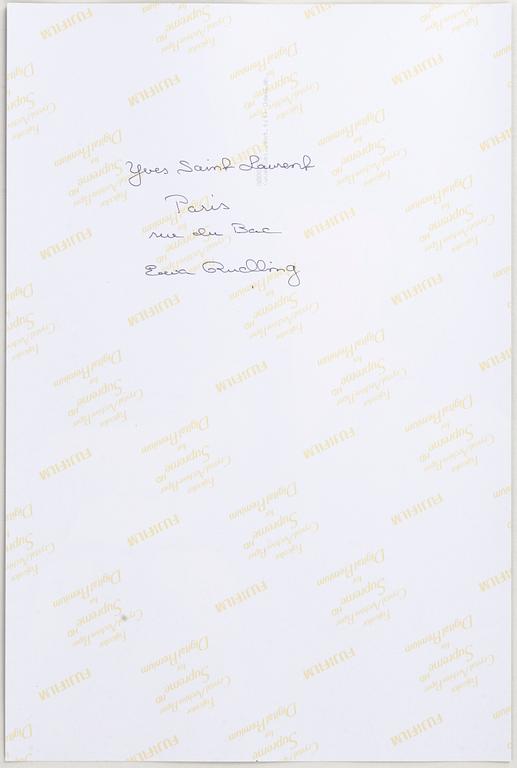 Yves Saint Laurent
Paris
rue du Bac
Ewa Rudling
FUJIFILM
Fujicolor
Crystal Archive Paper
Supreme HD
for
Digital Premium